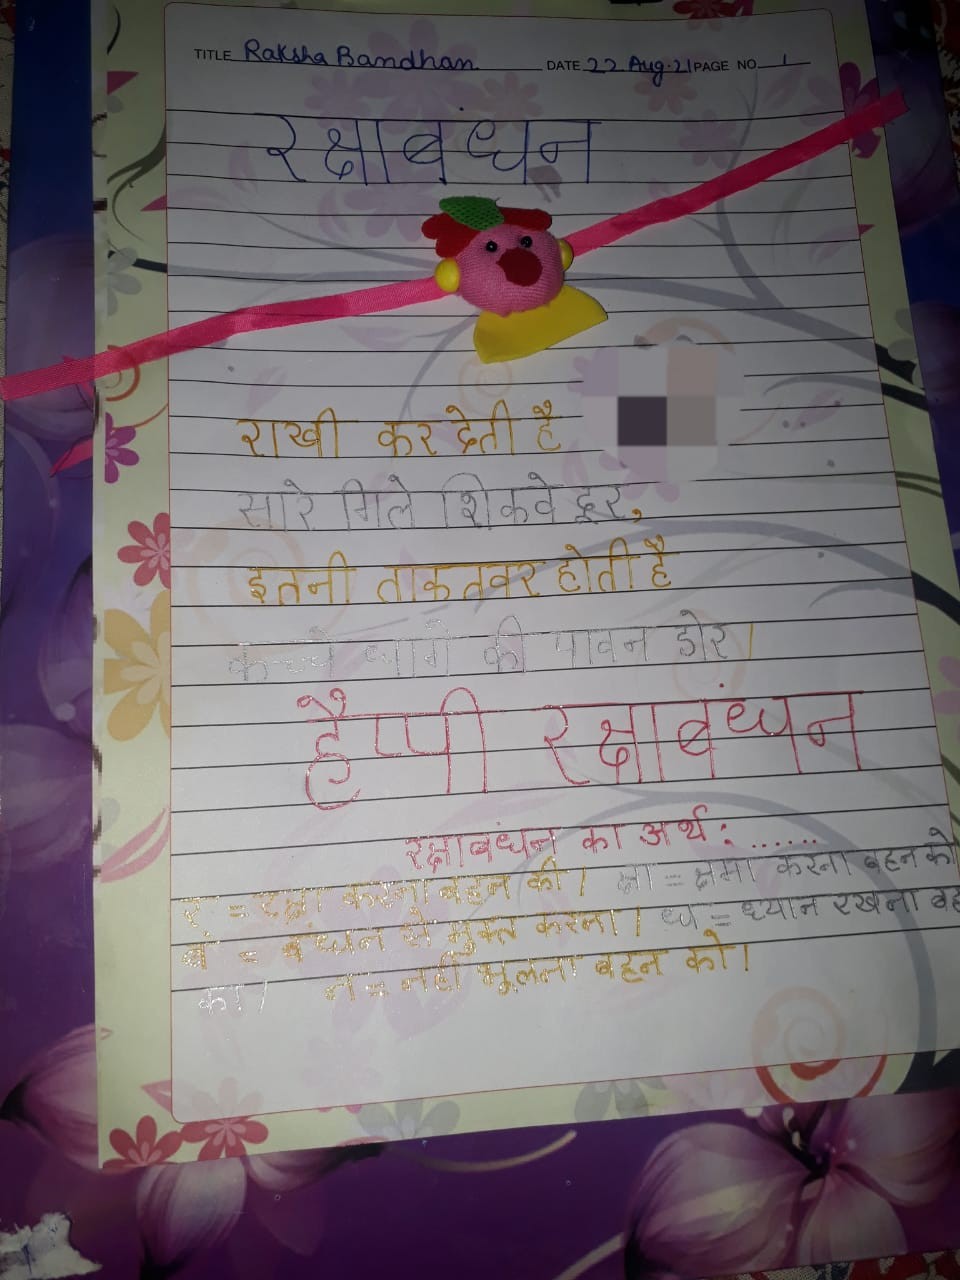 TITLE Raksha Bandhan DATE 22 Aug. 21 PAGE NO 1
रक्षाबंधन
राखी कर देती है
सारे गिले शिकवे दूर,
इतनी ताकतवर होती है
कच्चे धागे की पावन डोर।
हैप्पी रक्षाबंधन
रक्षाबंधन का अर्थ :......
र = रक्षा करना बहन की। क्षा = क्षमा करना बहन को
बं = बंधन से मुक्त करना। ध = ध्यान रखना बह
का। न = नहीं भूलना बहन को।